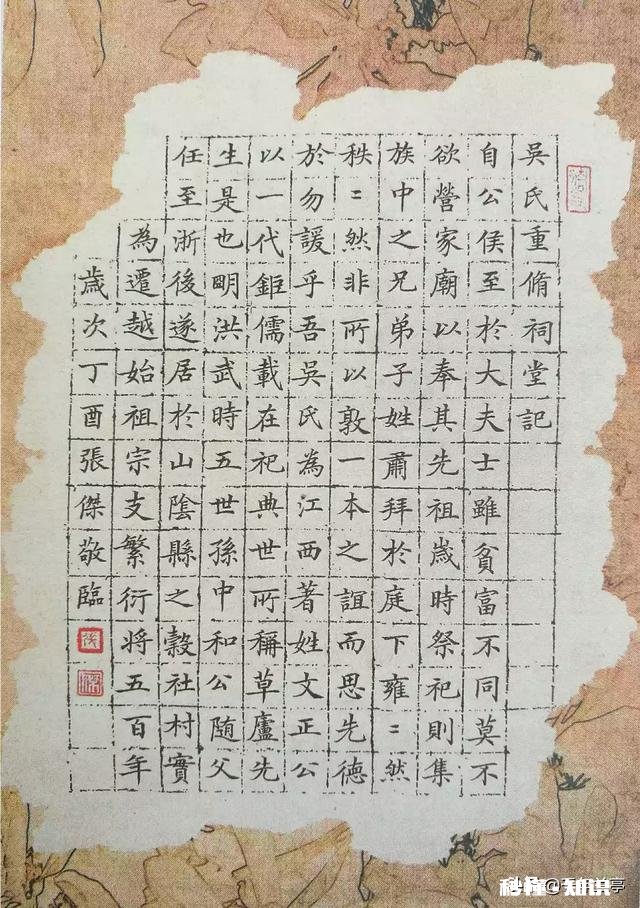 吳氏重脩祠堂記
自公侯至於大夫士雖貧富不同莫不
欲營家廟以奉其先祖嵗時祭祀則集
族中之兄弟子姓肅拜於庭下雍〻然
秩〻然非所以敦一本之誼而思先德
於勿諼乎吾吳氏為江西著姓文正公
以一代鉅儒載在祀典世所稱草廬先
生是也明洪武時五世孫中和公随父
任至浙後遂居於山陰縣之穀社村實
為遷越始祖宗支繁衍将五百年
嵗次丁酉張傑敬臨
秒懂知识